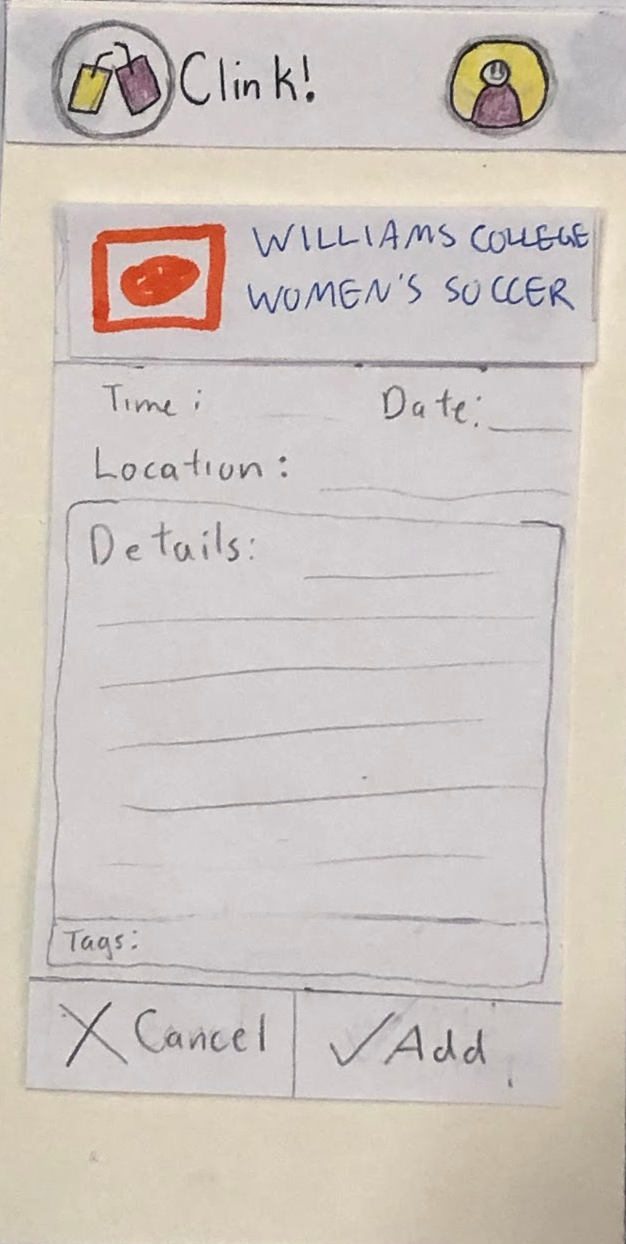 Clink!
WILLIAMS COLLEGE
WOMEN'S SOCCER
Time: Date:
Location:
Details:
Tags:
X Cancel ✓ Add